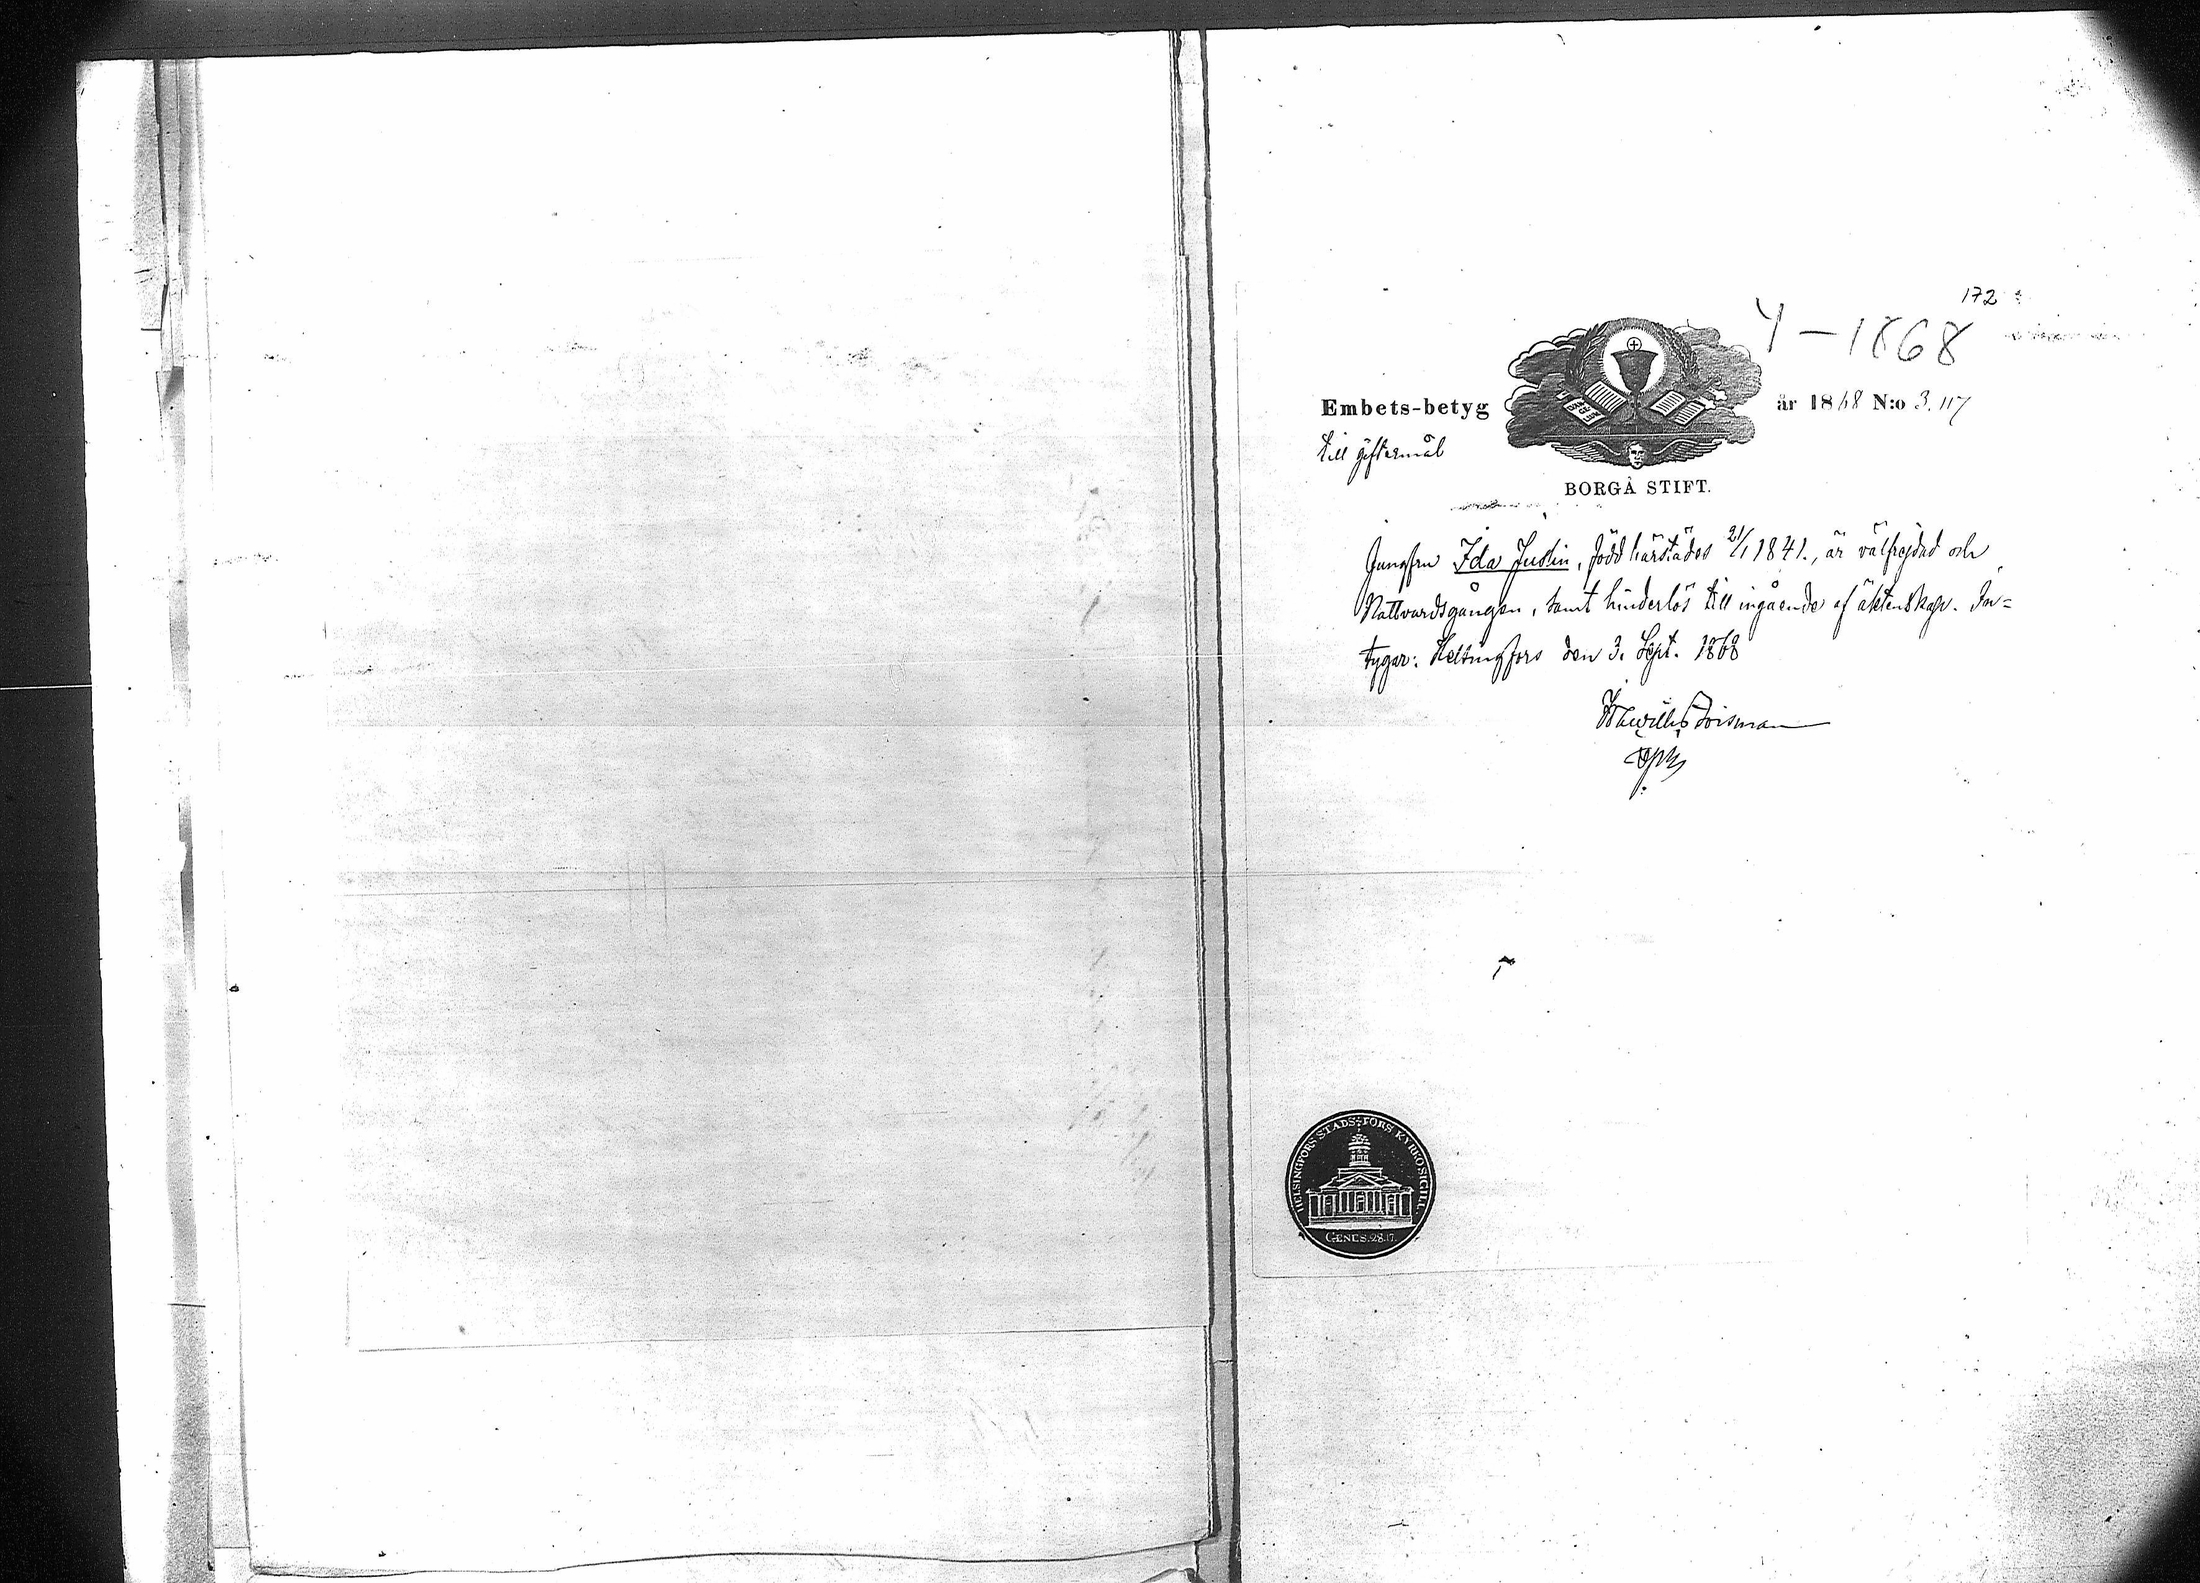 172
4-1868
Embets-betyg år 1868 N:o 3.117
till giftermål
EVAN-
GE-
LIUM
BORGÅ STIFT.
Jungfru Ida Judin, född härstädes 21/1 1841., är välfrejdad och
Nattvardsgången, samt hinderlös till ingående af äktenskap. In=
tygar: Helsingfors den 3. Sept. 1868
HELSINGFORS STADS-FÖRS. KYRKOSIGILL.
GENES. 28.17.